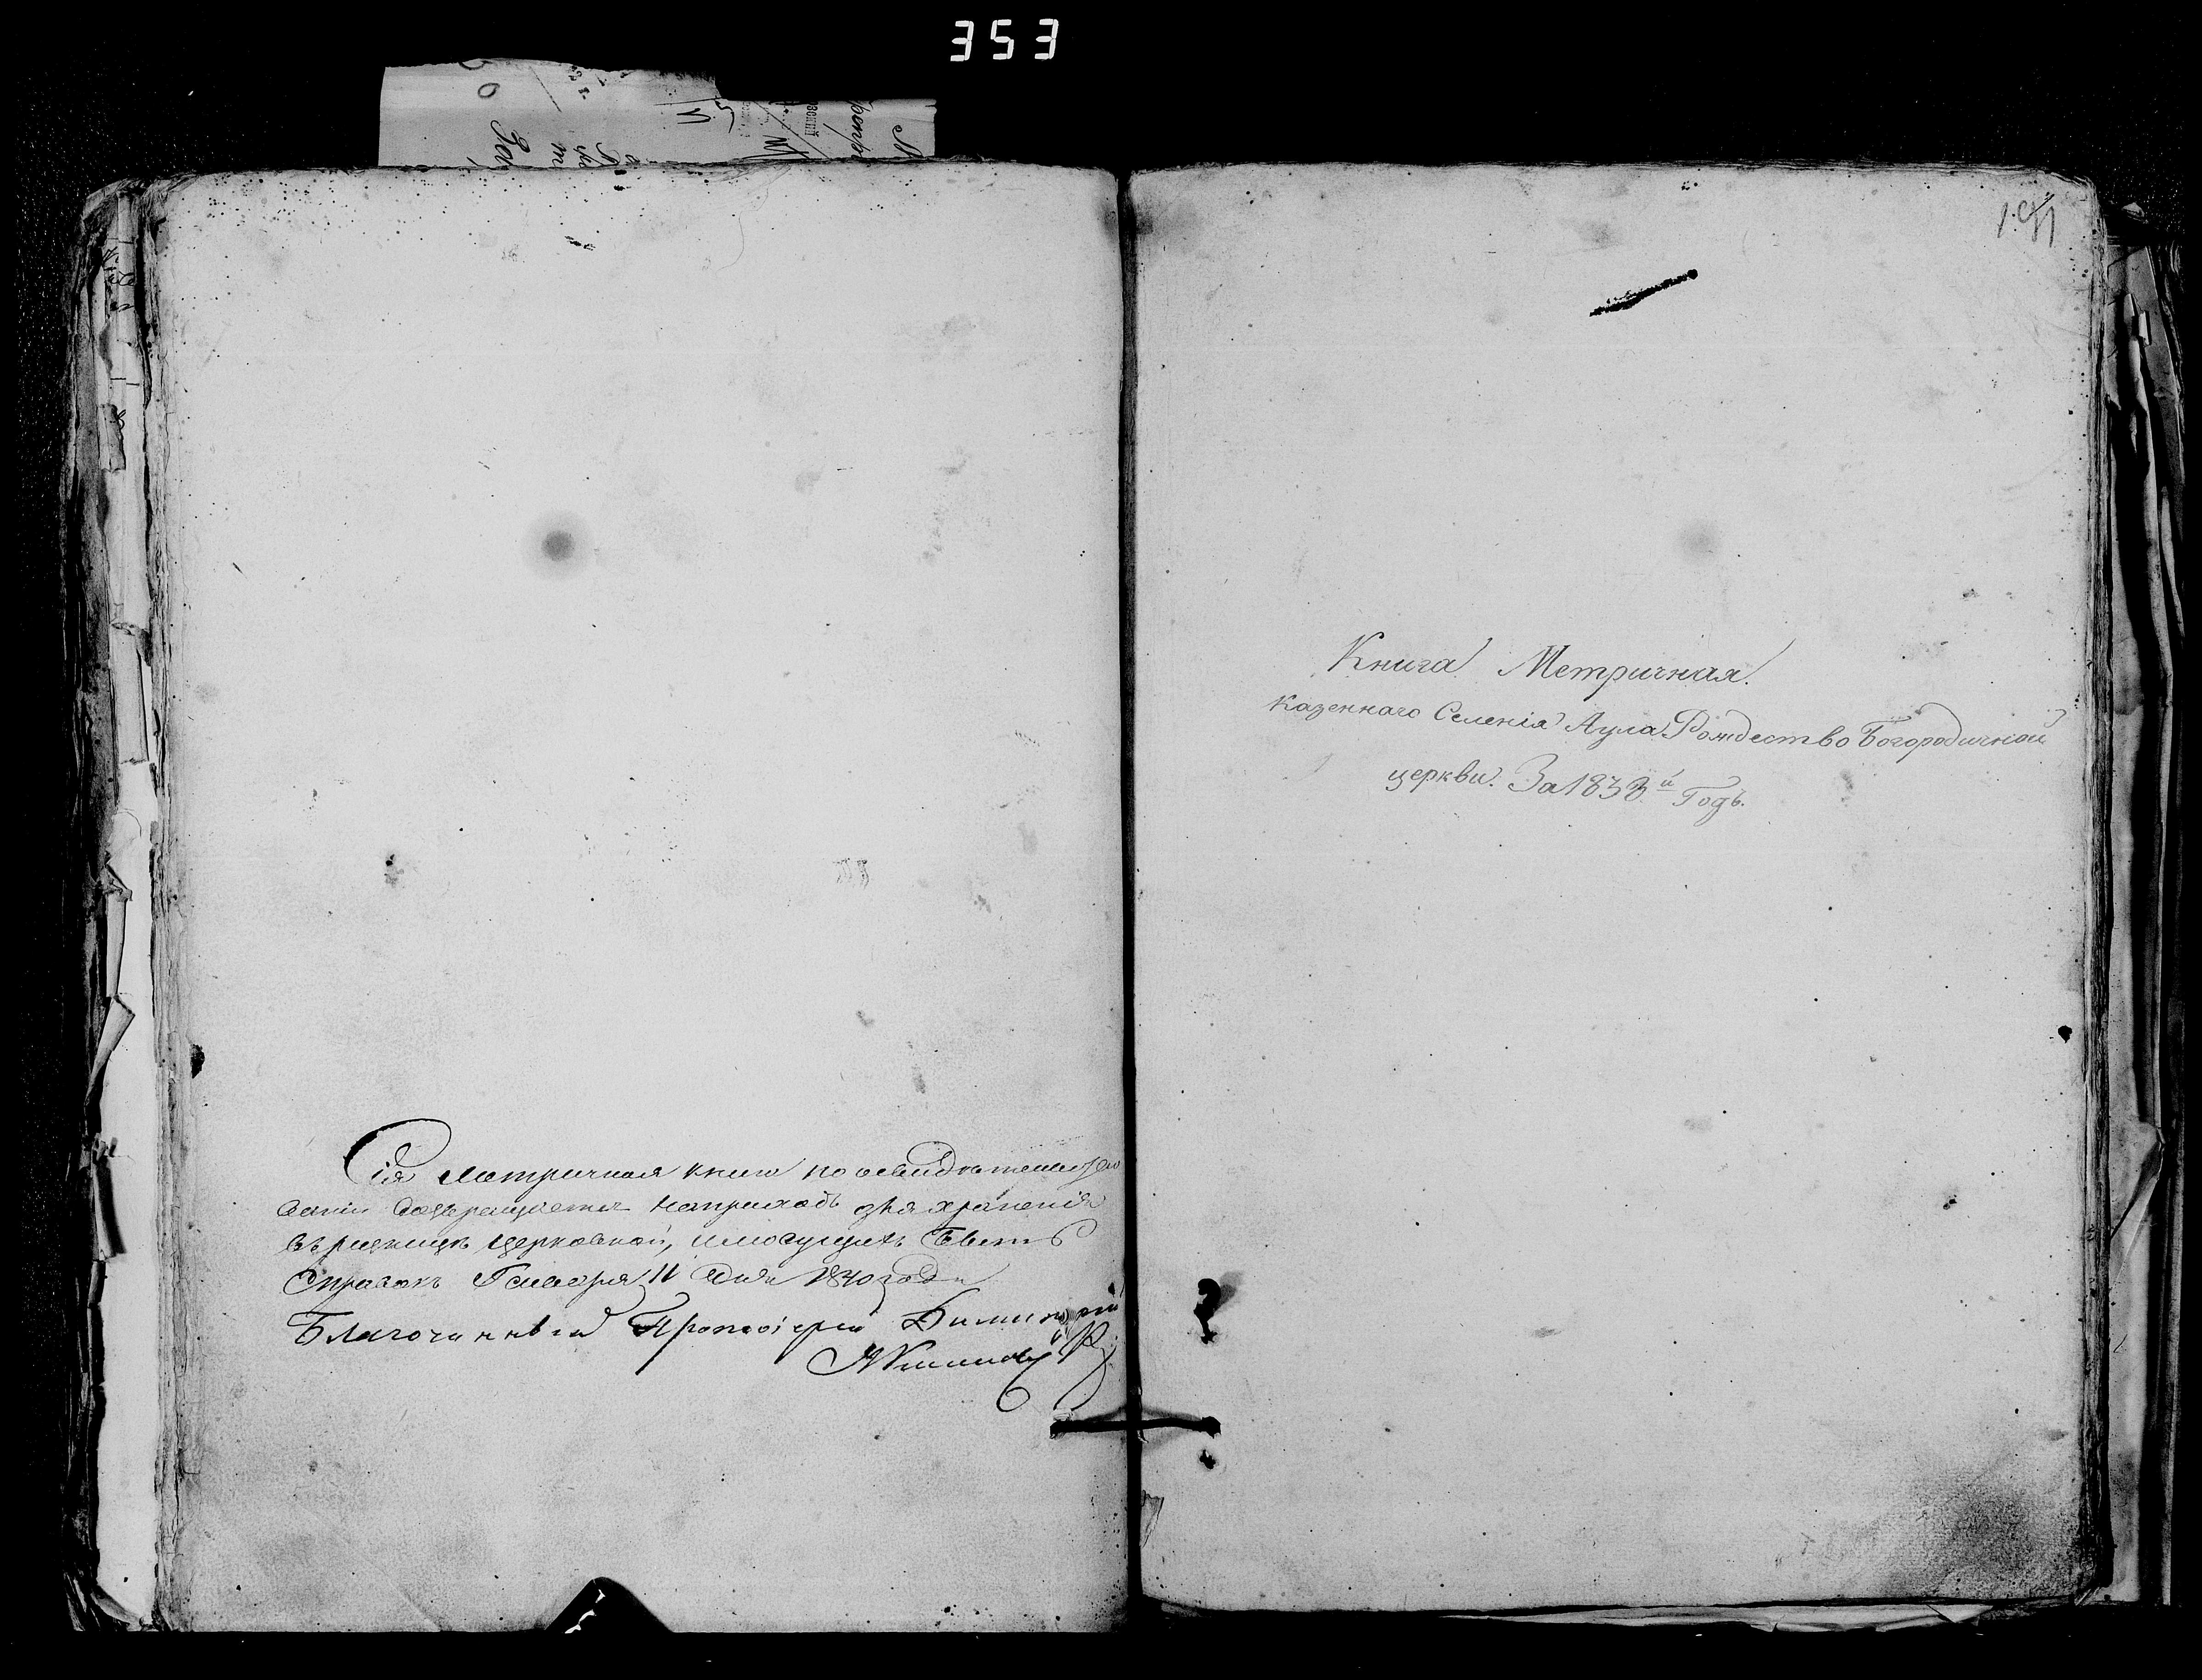 353
Сія Метричная книга по освидѣтельство
ваніи возвращается на приходъ для храненія
въ ризницѣ церковной, и могущихъ быть
Справокъ Генваря 11 дня 1840 года
Благочинный Протоіерей Димитрій
Книга Метричная.
казеннаго Селенія Аула Рождество Богородичной
церкви. За 1838й Годъ.